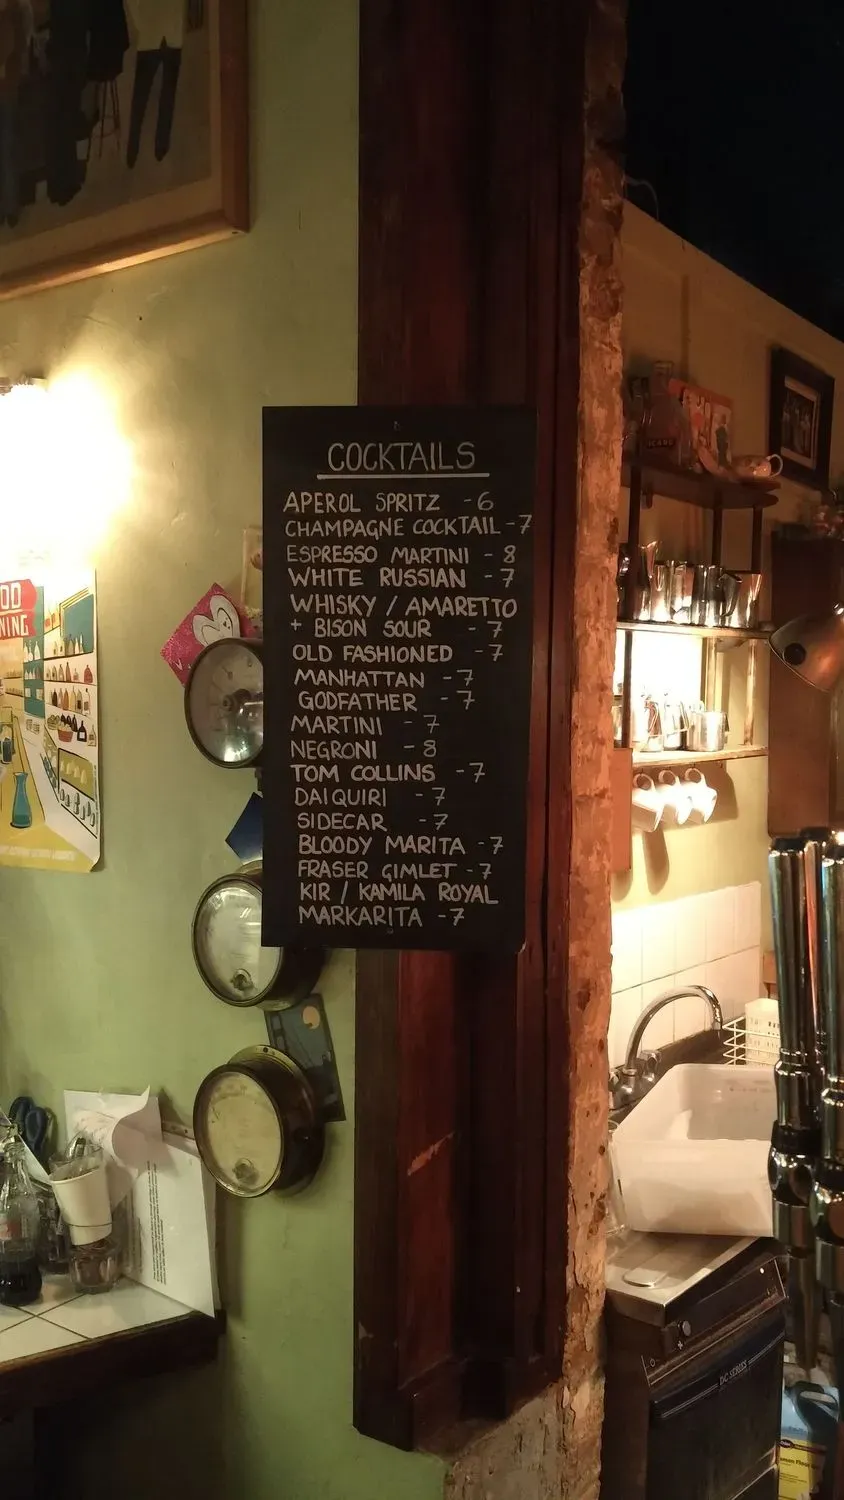 COCKTAILS
APEROL SPRITZ - 6
CHAMPAGNE COCKTAIL - 7
ESPRESSO MARTINI - 8
WHITE RUSSIAN - 7
WHISKY / AMARETTO
+ BISON SOUR - 7
OLD FASHIONED - 7
MANHATTAN - 7
GODFATHER - 7
MARTINI - 7
NEGRONI - 8
TOM COLLINS - 7
DAIQUIRI - 7
SIDECAR - 7
BLOODY MARITA - 7
FRASER GIMLET - 7
KIR / KAMILA ROYAL
MARKARITA - 7
OD
NING
DC SERIES